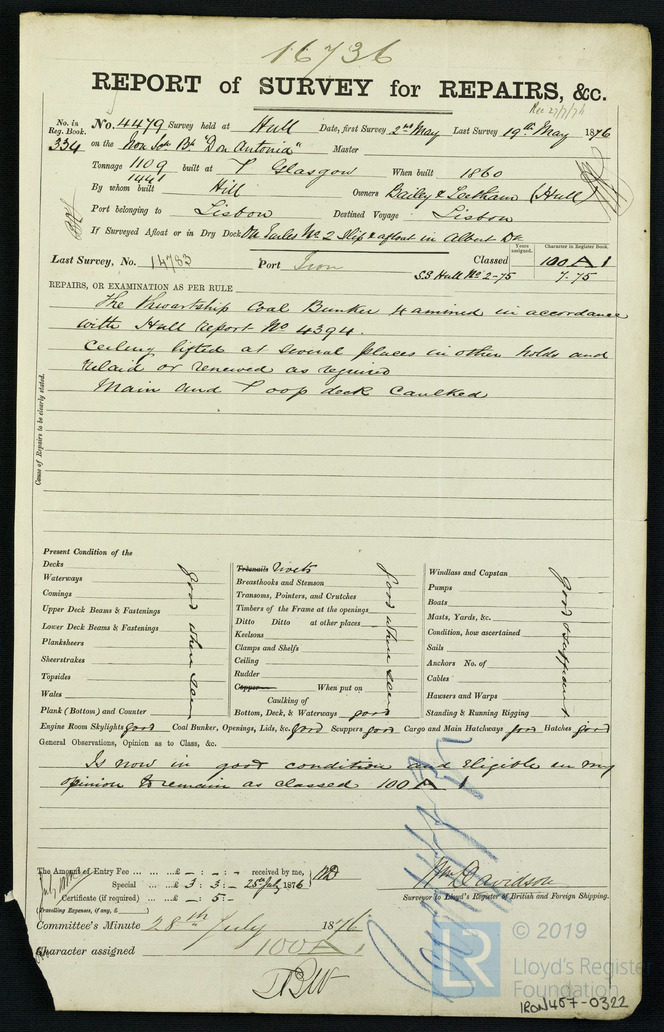 16736
REPORT of SURVEY for REPAIRS, &c.
Rec 27/7/76
No. in Reg. Book. No. 4479 Survey held at Hull Date, first Survey 2nd May Last Survey 19th May 1876
334 on the Iron Sch Bk "Don Antonia" Master
Tonnage 1109 built at P Glasgow When built 1860
1441
By whom built Hill Owners Bailey & Leetham (Hull)
Port belonging to Lisbon Destined Voyage Lisbon
If Surveyed Afloat or in Dry Dock On Earles No 2 Slip & afloat in Albert Dk
Last Survey, No. 14783 Port Iron Classed Years assigned. Character in Register Book. 100 A 1
SS Hull No 2-75 7.75
REPAIRS, OR EXAMINATION AS PER RULE
The thwartship Coal Bunker examined in accordance
with Hull Report No 4394.
Ceiling lifted at several places in other holds and
relaid or renewed as required
Main and Poop deck caulked
Cause of Repairs to be clearly stated.
Present Condition of the
Decks
Waterways
Comings
Upper Deck Beams & Fastenings
Lower Deck Beams & Fastenings
Planksheers
Sheerstrakes
Topsides
Wales
Plank (Bottom) and Counter
good when seen
Treenails Rivets
Breasthooks and Stemson
Transoms, Pointers, and Crutches
Timbers of the Frame at the openings
Ditto Ditto at other places
Keelsons
Clamps and Shelfs
Ceiling
Rudder
Copper When put on
Caulking of
Bottom, Deck, & Waterways good
good when seen
Windlass and Capstan
Pumps
Boats
Masts, Yards, &c.
Condition, how ascertained
Sails
Anchors No. of
Cables
Hawsers and Warps
Standing & Running Rigging
good & sufficient
Engine Room Skylights good Coal Bunker, Openings, Lids, &c. good Scuppers good Cargo and Main Hatchways good Hatches good
General Observations, Opinion as to Class, &c.
Is now in good condition and eligible in my
opinion to remain as classed 100 A 1
The Amount of Entry Fee ... ... £ - : - : - received by me,
July 18th Special ... ... £ 3 : 3 : - 25th July 1876
Certificate (if required) ... £ - : 5 : -
(Travelling Expenses, if any, £ )
Wm Davidson
Surveyor to Lloyd's Register of British and Foreign Shipping.
Committee's Minute 28th July 1876
Character assigned 100 A 1
LR © 2019
Lloyd's Register
Foundation
IRON457-0322